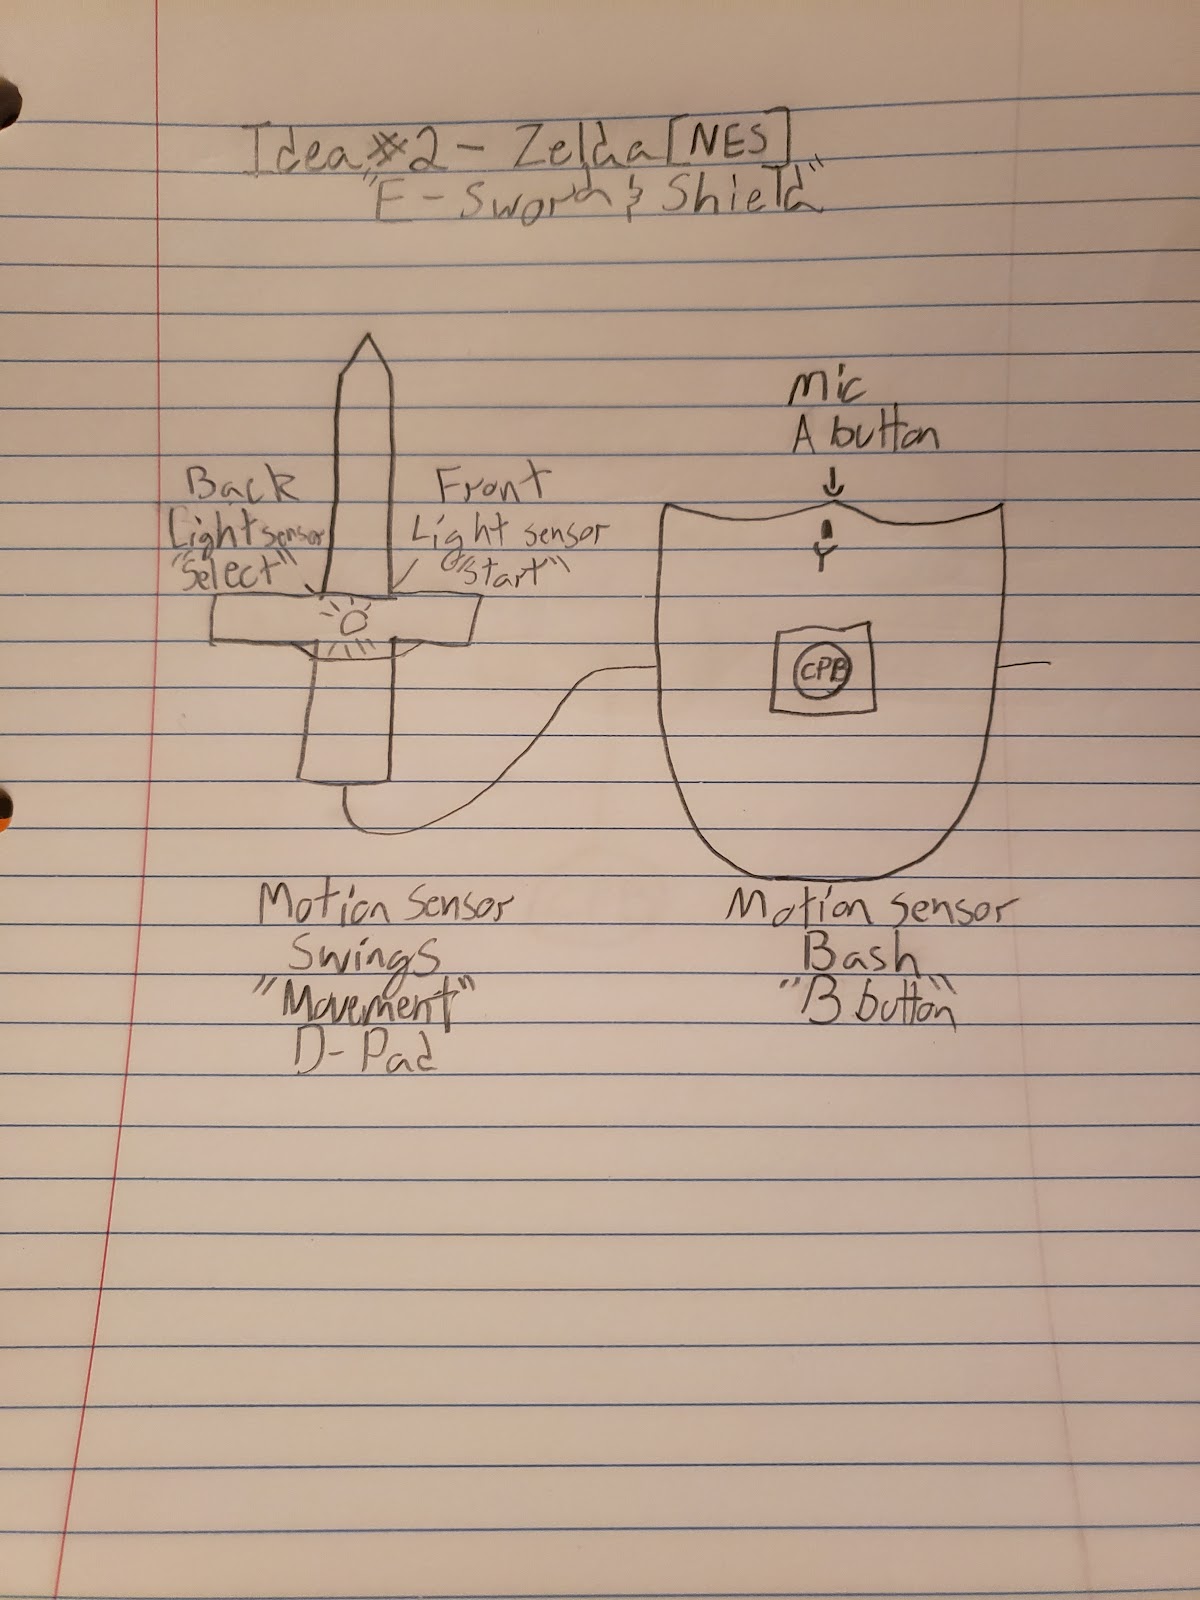 Idea #2 - Zelda [NES]
"E-Sword & Shield"
Back
Light sensor
"Select"
Front
Light sensor
"Start"
Mic
A button
CPB
Motion sensor
Swings
"Movement"
D-Pad
Motion sensor
Bash
"B button"